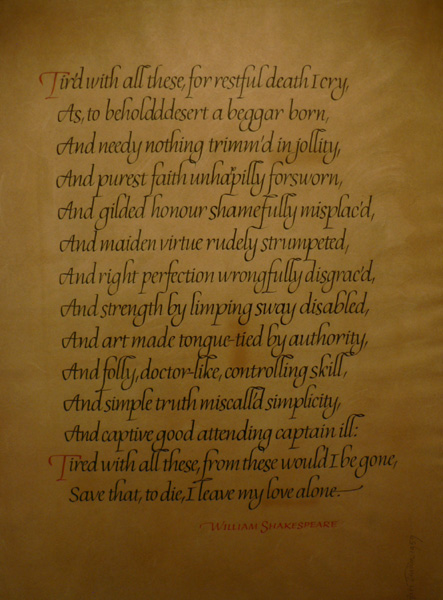 Tir'd with all these, for restful death I cry,
As, to beholdddesert a beggar born,
And needy nothing trimm'd in jollity,
And purest faith unhapilly forsworn,
And gilded honour shamefully misplac'd,
And maiden virtue rudely strumpeted,
And right perfection wrongfully disgrac'd,
And strength by limping sway disabled,
And art made tongue-tied by authority,
And folly, doctor-like, controlling skill,
And simple truth miscall'd simplicity,
And captive good attending captain ill:
Tired with all these, from these would I be gone,
Save that, to die, I leave my love alone.
William Shakespeare